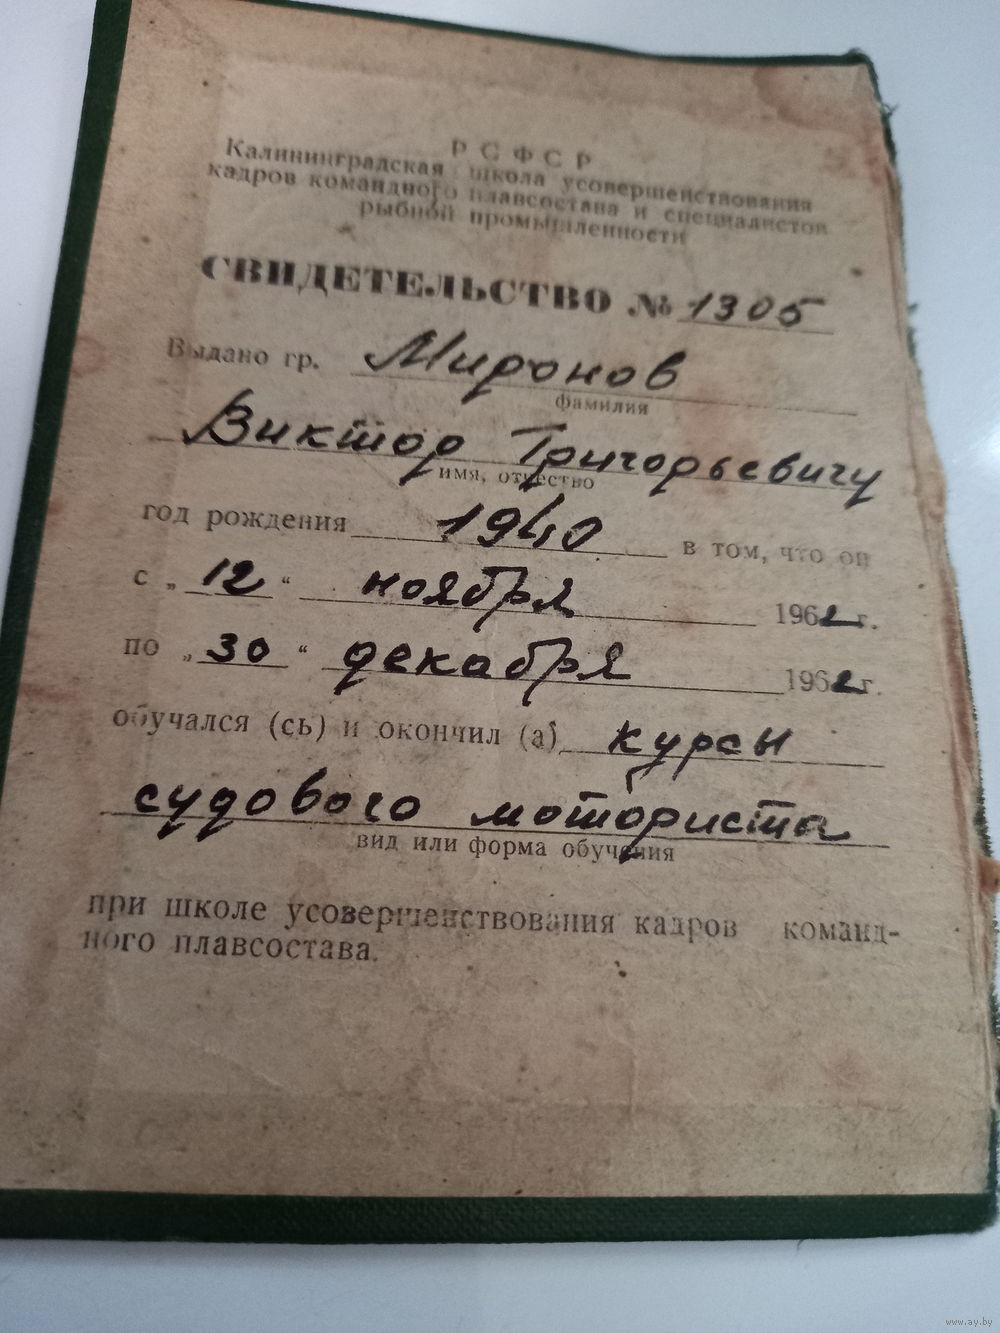 РСФСР
Калининградская школа усовершенствования
кадров командного плавсостава и специалистов
рыбной промышленности
СВИДЕТЕЛЬСТВО № 1305
Выдано гр. Миронов
фамилия
Виктор Григорьевичу
имя, отчество
год рождения 1940 в том, что он
с „12“ ноября 1962 г.
по „30“ декабря 1962 г.
обучался (сь) и окончил (а) курсы
судового моториста
вид или форма обучения
при школе усовершенствования кадров команд-
ного плавсостава.
www.ay.by